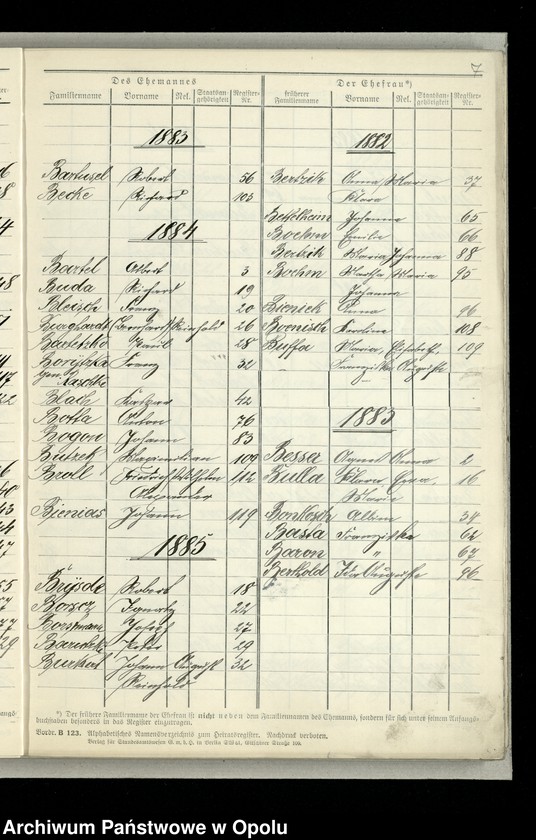 7
Des Ehemannes
Der Ehefrau*)
Familienname Vorname Rel. Staatsangehörigkeit Register-Nr.
früherer Familienname Vorname Rel. Staatsangehörigkeit Register-Nr.
1883
Bartusel Robert 56
Becke Richard 103
1884
Bartel Albert 3
Buda Richard 19
Bleisch Franz 20
Burghardt Bernhard Reinhold 26
Emil 28
Franz 32
gen. Raschke
Blach 42
Botta Anton 76
Bogon Johann 83
Butzek Maximilian 109
Broll Friedrich Wilhelm 112
Alexander
Bienias Johann 119
1885
Robert 18
Ignatz 22
Borsmann Josef 27
Peter 29
Burkert Johann August 32
Reinhold
1882
Bertzik Anna Maria 37
Klara
Johanna 65
Boehm Emilie 66
Bertzik Maria Johanna 88
Boehm Martha Maria 95
Johanna
Bieniek Anna 96
Boenisch Karoline 108
Buffa Maria, Elisabeth, 109
Franziska Auguste
1883
Besser Agnes Anna 2
Bulla Klara, 16
Maria
Bonkosch Albine 34
Basta Franziska 62
Baron " 67
Berthold Ida Auguste 96
*) Der frühere Familienname der Ehefrau ist nicht neben den Familiennamen des Ehemanns, sondern für sich unter seinem Anfangs-
buchstaben besonders in das Register einzutragen.
Vordr. B 123. Alphabetisches Namensverzeichnis zum Heiratsregister. Nachdruck verboten.
Verlag für Standesamtswesen G. m. b. H. in Berlin SW 61, Gitschiner Straße 109.
Archiwum Państwowe w Opolu